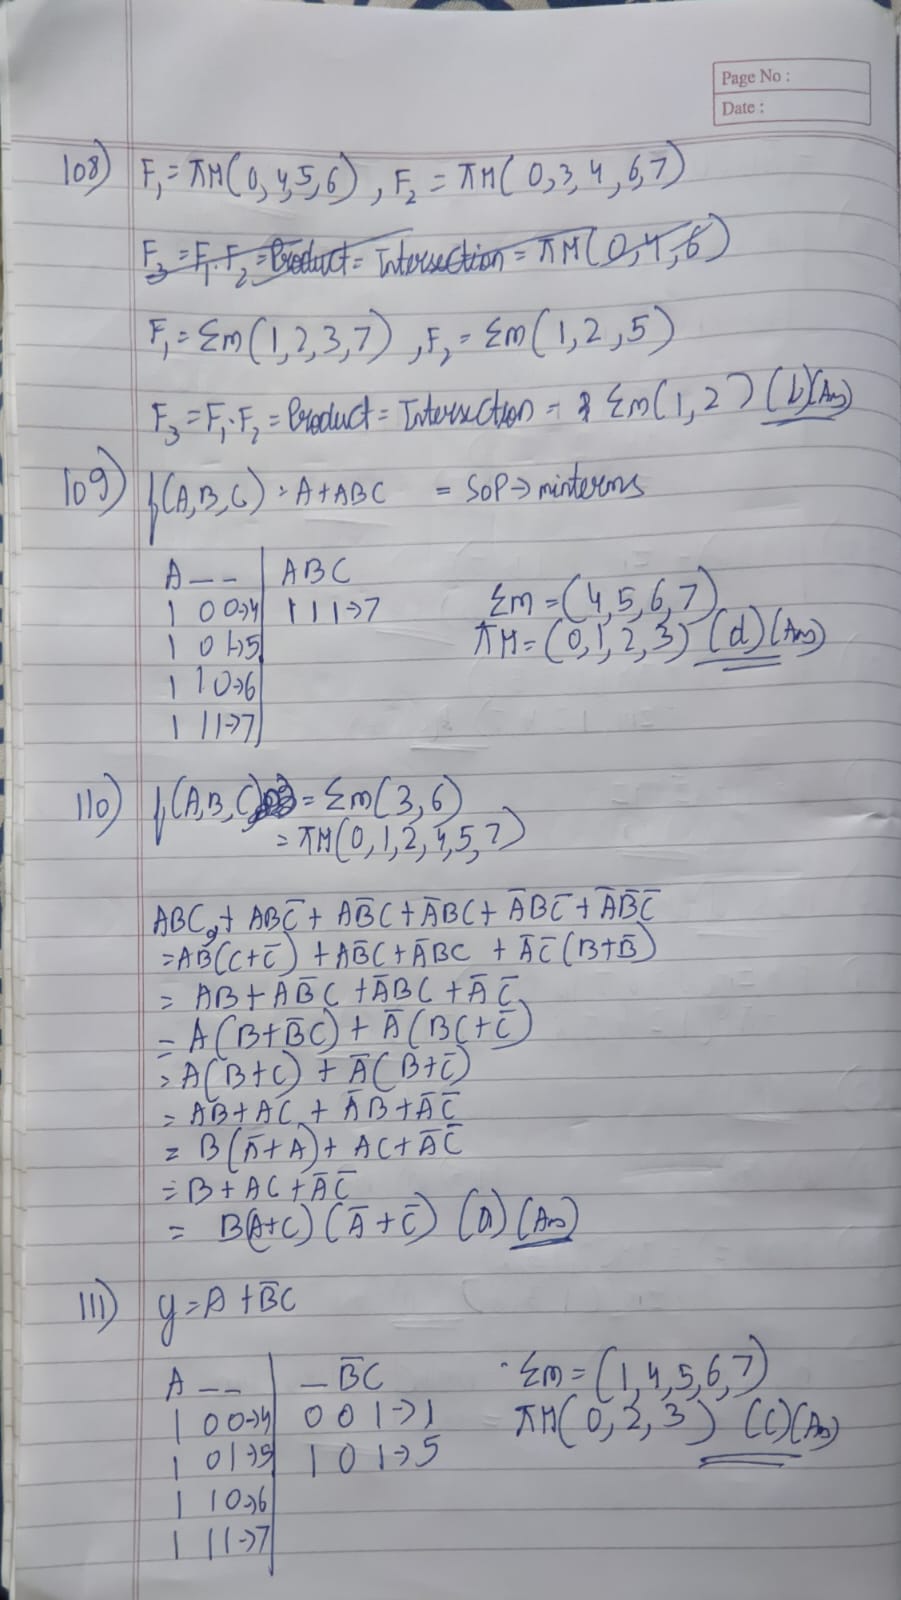 Page No :
Date :
108) F₁ = πM(0,4,5,6) , F₂ = πM(0,3,4,6,7)
F₃ = F₁.F₂ = Product = Intersection = πM(0,4,6)
F₁ = Σm(1,2,3,7) , F₂ = Σm(1,2,5)
F₃ = F₁.F₂ = Product = Intersection = Σm(1,2) (b)(Ans)
109) f(A,B,C) = A+ABC = SOP → minterms
A _ _ | ABC
1 0 0→4 | 1 1 1→7 Σm = (4,5,6,7)
1 0 1→5 πM = (0,1,2,3) (d)(Ans)
1 1 0→6
1 1 1→7
110) f(A,B,C) = Σm(3,6)
= πM(0,1,2,4,5,7)
ABC + ABC̅ + AB̅C + A̅BC + A̅BC̅ + A̅B̅C̅
= AB(C+C̅) + AB̅C + A̅BC + A̅C̅(B+B̅)
= AB + AB̅C + A̅BC + A̅C̅
= A(B+B̅C) + A̅(BC+C̅)
= A(B+C) + A̅(B+C̅)
= AB + AC + A̅B + A̅C̅
= B(A̅+A) + AC + A̅C̅
= B + AC + A̅C̅
= B(A+C)(A̅+C̅) (a)(Ans)
111) y = A + B̅C
A _ _ | _ B̅C Σm = (1,4,5,6,7)
1 0 0→4 | 0 0 1→1 πM(0,2,3) (c)(Ans)
1 0 1→5 | 1 0 1→5
1 1 0→6
1 1 1→7